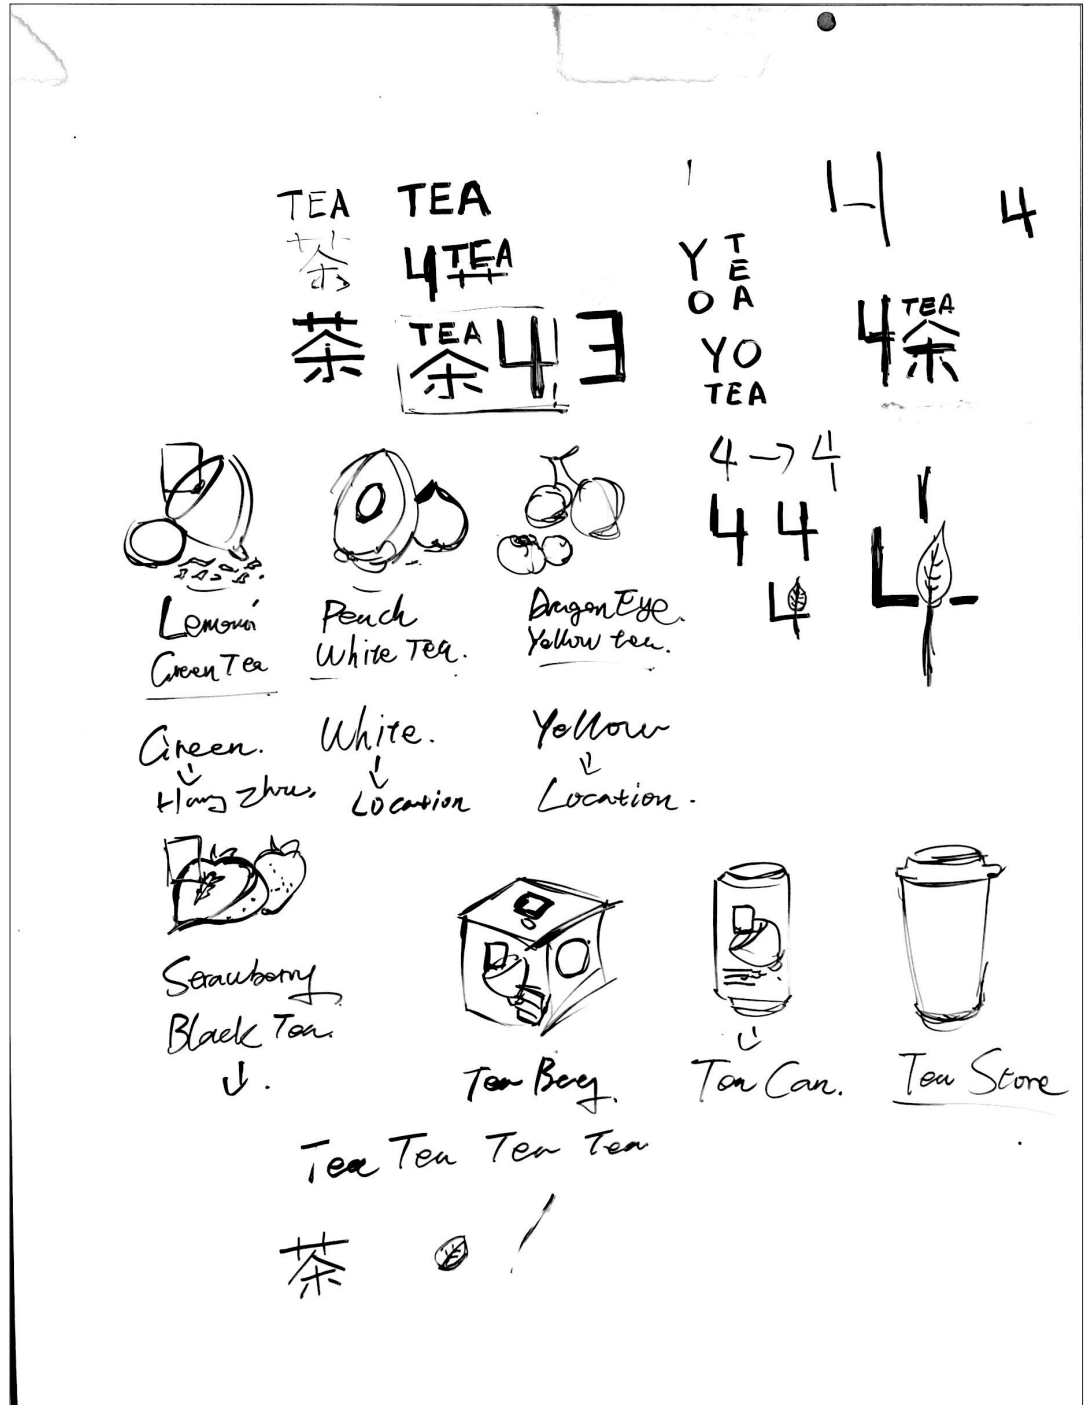 TEA TEA
茶 4TEA
茶 TEA 茶 4 3
4 4
Y TEA
O
YO
TEA
4 TEA 茶
4 → 4
4 4
4 4
Lemon
Green Tea
Peach
White Tea.
Dragon Eye.
Yellow tea.
Green.
↓
Hang Zhou,
White.
↓
Location
Yellow
↓
Location.
Strawberry
Black Tea.
↓
Tea Bag.
↓
Tea Can.
Tea Store
Tea Tea Tea Tea
茶